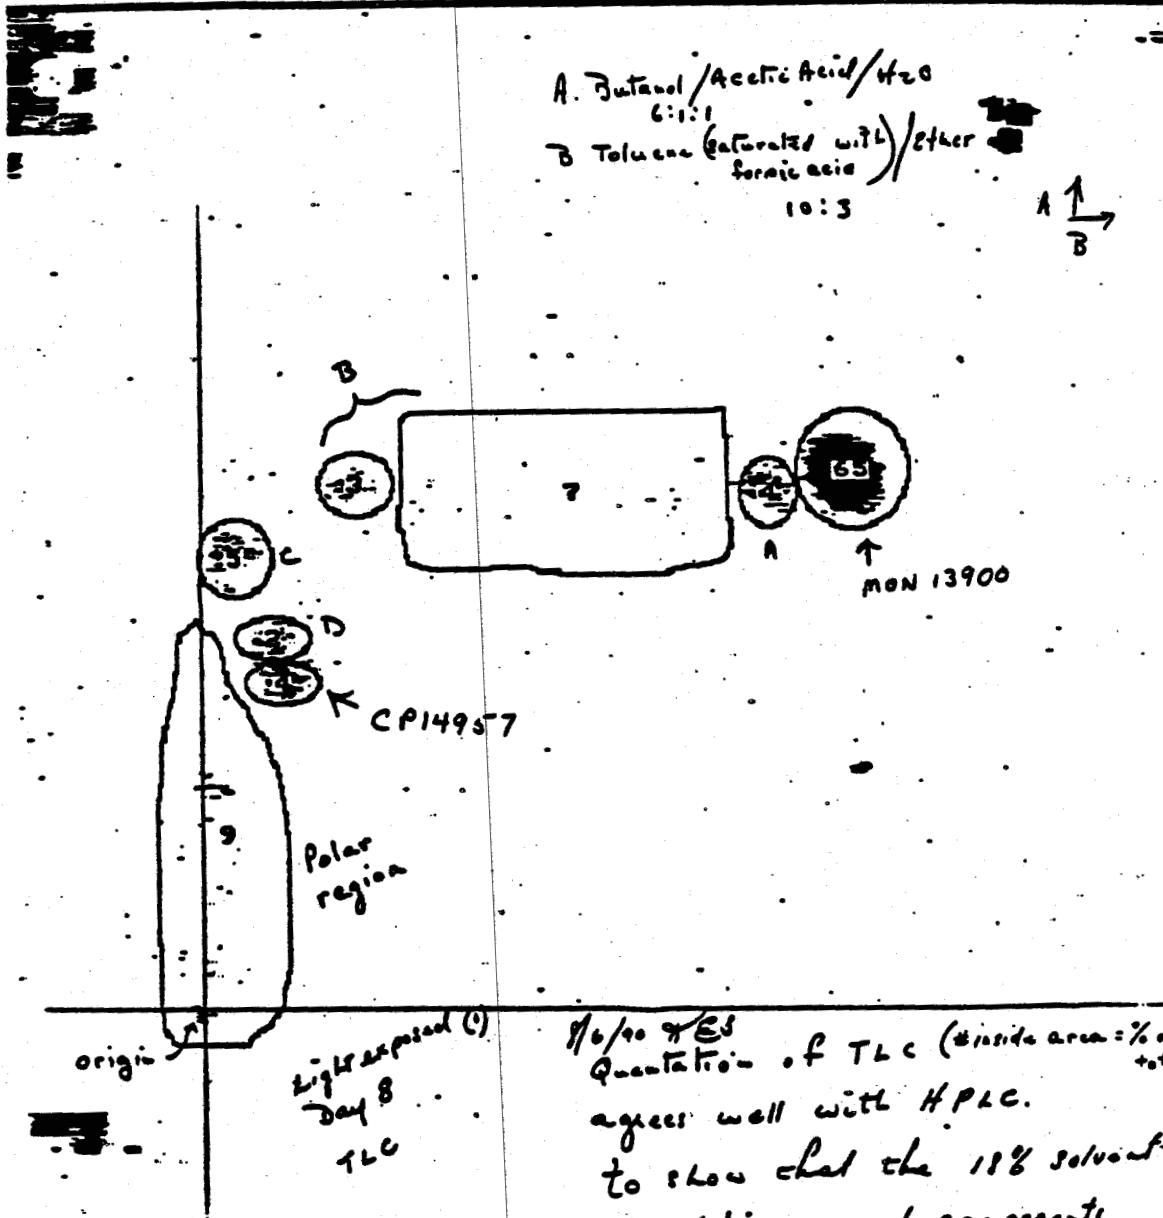 A. Butanol/Acetic Acid/H2O
6:1:1
B Toluene (saturated with)/Ether
formic acid
10:3
A
B
B
3
7
4
65
A
MON 13900
3
C
2
D
4
CP14957
9
Polar
region
origin
Light exposed (1)
Day 8
TLC
8/6/90
Quantation of TLC (#inside area = %
agrees well with HPLC.
to show that the 18% solvent